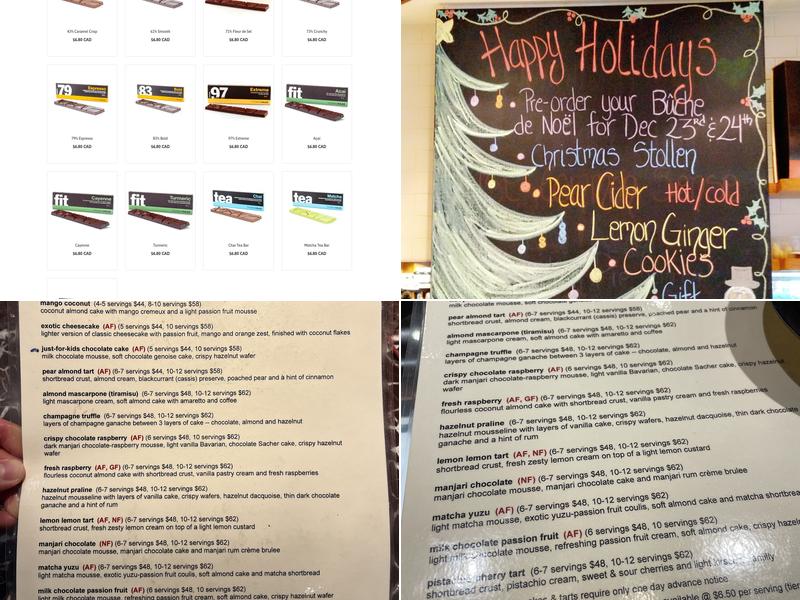 43% Caramel Crisp
62% Smooth
72% Fleur de Sel
73% Crunchy
$6.80 CAD
$6.80 CAD
$6.80 CAD
$6.80 CAD
79 Espresso
83 Bold
97 Extreme
fit Acai
79% Espresso
83% Bold
97% Extreme
Acai
$6.80 CAD
$6.80 CAD
$6.80 CAD
$6.80 CAD
fit Cayenne
fit Turmeric
tea Chai
tea Matcha
Cayenne
Turmeric
Chai Tea Bar
Matcha Tea Bar
$6.80 CAD
$6.80 CAD
$6.80 CAD
$6.80 CAD
Happy Holidays
• Pre-order your Bûche
de Noël for Dec 23rd & 24th
• Christmas Stollen
• Pear Cider Hot/cold
• Lemon Ginger
Cookies
Gift
mango coconut (4-5 servings $44, 8-10 servings $58)
coconut almond cake with mango cremeux and a light passion fruit mousse
exotic cheesecake (AF) (5 servings $44, 10 servings $58)
lighter version of classic cheesecake with passion fruit, mango and orange zest, finished with coconut flakes
just-for-kids chocolate cake (AF) (5 servings $44, 10 servings $58)
milk chocolate mousse, soft chocolate genoise cake, crispy hazelnut wafer
pear almond tart (AF) (6-7 servings $44, 10-12 servings $58)
shortbread crust, almond cream, blackcurrant (cassis) preserve, poached pear and a hint of cinnamon
almond mascarpone (tiramisu) (6-7 servings $48, 10-12 servings $62)
light mascarpone cream, soft almond cake with amaretto and coffee
champagne truffle (6-7 servings $48, 10-12 servings $62)
layers of champagne ganache between 3 layers of cake – chocolate, almond and hazelnut
crispy chocolate raspberry (AF) (6 servings $48, 10 servings $62)
dark manjari chocolate-raspberry mousse, light vanilla Bavarian, chocolate Sacher cake, crispy hazelnut
wafer
fresh raspberry (AF, GF) (6-7 servings $48, 10-12 servings $62)
flourless coconut almond cake with shortbread crust, vanilla pastry cream and fresh raspberries
hazelnut praline (6-7 servings $48, 10-12 servings $62)
hazelnut mousseline with layers of vanilla cake, crispy wafers, hazelnut dacquoise, thin dark chocolate
ganache and a hint of rum
lemon lemon tart (AF, NF) (6-7 servings $48, 10-12 servings $62)
shortbread crust, fresh zesty lemon cream on top of a light lemon custard
manjari chocolate (NF) (6-7 servings $48, 10-12 servings $62)
manjari chocolate mousse, manjari chocolate cake and manjari rum crème brulee
matcha yuzu (AF) (6-7 servings $48, 10-12 servings $62)
light matcha mousse, exotic yuzu-passion fruit coulis, soft almond cake and matcha shortbread
milk chocolate passion fruit (AF) (6 servings $48, 10 servings $62)
light milk chocolate mousse, refreshing passion fruit cream, soft almond cake, crispy hazelnut
milk chocolate mousse, soft chocolate genoise cake, crispy hazelnut wafer
pear almond tart (AF) (6-7 servings $44, 10-12 servings $58)
shortbread crust, almond cream, blackcurrant (cassis) preserve, poached pear and a hint of cinnamon
almond mascarpone (tiramisu) (6-7 servings $48, 10-12 servings $62)
light mascarpone cream, soft almond cake with amaretto and coffee
champagne truffle (6-7 servings $48, 10-12 servings $62)
layers of champagne ganache between 3 layers of cake – chocolate, almond and hazelnut
crispy chocolate raspberry (AF) (6 servings $48, 10 servings $62)
dark manjari chocolate-raspberry mousse, light vanilla Bavarian, chocolate Sacher cake, crispy hazelnut
wafer
fresh raspberry (AF, GF) (6-7 servings $48, 10-12 servings $62)
flourless coconut almond cake with shortbread crust, vanilla pastry cream and fresh raspberries
hazelnut praline (6-7 servings $48, 10-12 servings $62)
hazelnut mousseline with layers of vanilla cake, crispy wafers, hazelnut dacquoise, thin dark chocolate
ganache and a hint of rum
lemon lemon tart (AF, NF) (6-7 servings $48, 10-12 servings $62)
shortbread crust, fresh zesty lemon cream on top of a light lemon custard
manjari chocolate (NF) (6-7 servings $48, 10-12 servings $62)
manjari chocolate mousse, manjari chocolate cake and manjari rum crème brulee
matcha yuzu (AF) (6-7 servings $48, 10-12 servings $62)
light matcha mousse, exotic yuzu-passion fruit coulis, soft almond cake and matcha shortbrea
milk chocolate passion fruit (AF) (6 servings $48, 10 servings $62)
light milk chocolate mousse, refreshing passion fruit cream, soft almond cake, crispy hazeln
pistachio cherry tart (6-7 servings $48, 10-12 servings $62)
shortbread crust, pistachio cream, sweet & sour cherries and light vanilly
cakes & tarts require only one day advance notice
available @ $6.50 per serving (tier